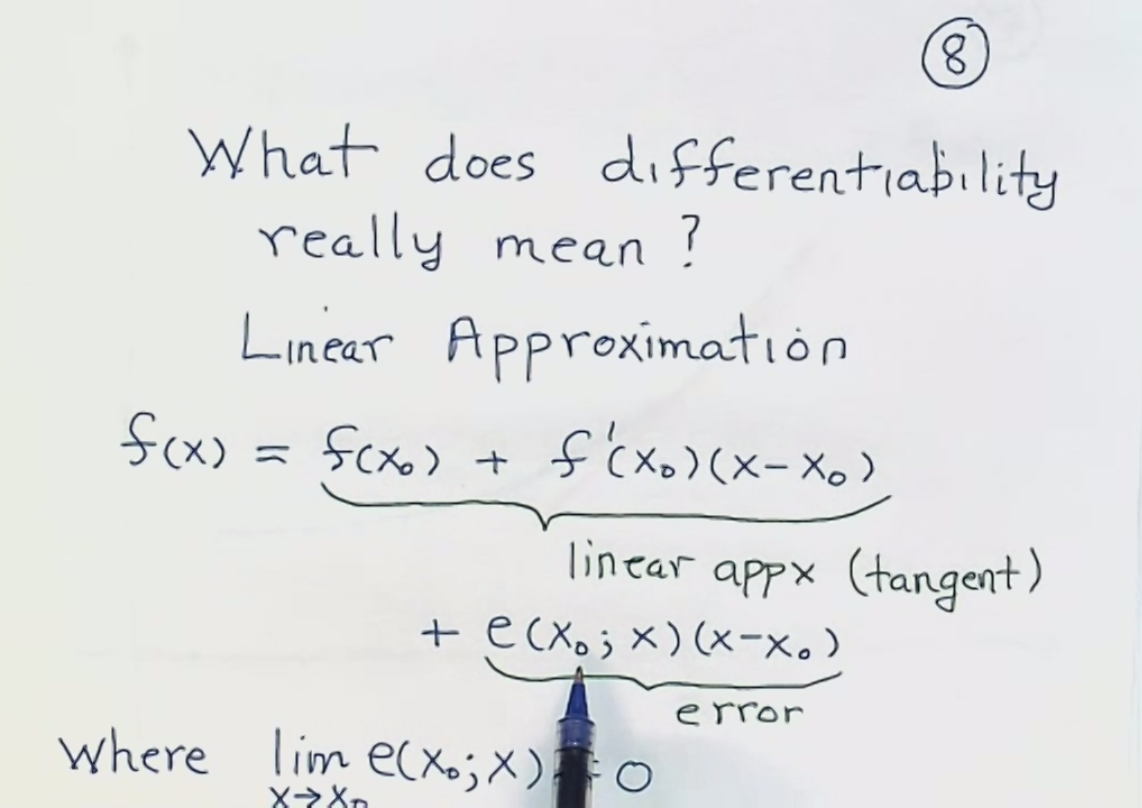 8
What does differentiability
really mean?
Linear Approximation
f(x) = f(x₀) + f'(x₀)(x-x₀)
linear appx (tangent)
+ e(x₀; x)(x-x₀)
error
Where lim e(x₀; x) = 0
x→x₀